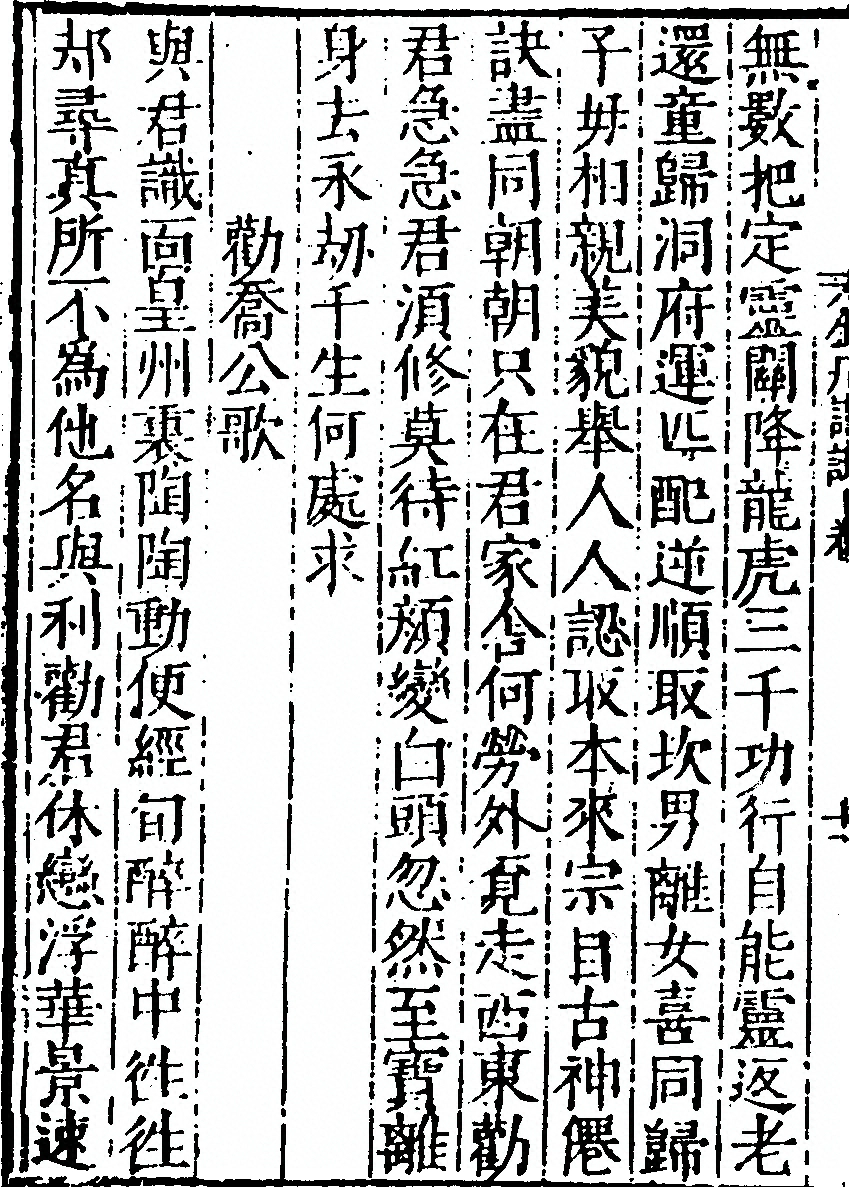 無數把定靈關降龍虎三千功行自能靈返老
還童歸洞府運匹配逆順取坎男離女喜同歸
子母相親美貌舉人人認取本來宗自古神僊
訣盡同朝朝只在君家舍何勞外覓走西東勸
君急急君須修莫待紅顏變白頭忽然至寶離
身去永劫千生何處求
勸喬公歌
與君識面皇州裏陶陶動便經旬醉醉中徃徃
却尋真所不為他名與利勸君休戀浮華景速